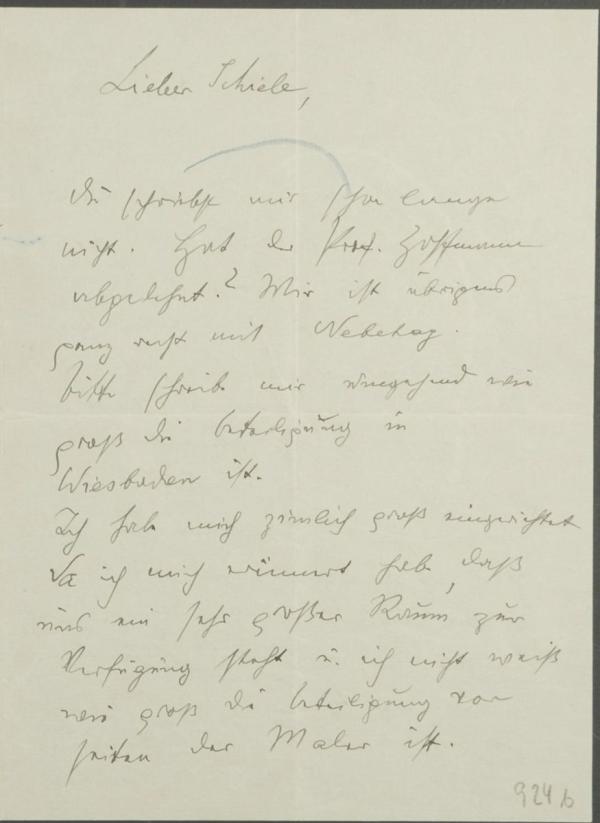 Lieber Schiele,
Du schreibst mir schon lange
nicht. Hat der Prof. Hoffmann
abgelehnt? Mir ist übrigens
ganz recht mit Nebehay.
bitte schreibe mir umgehend wie
groß die beteiligung in
Wiesbaden ist.
Ich habe mich ziemlich groß eingerichtet
Da ich mich erinnert habe, daß
uns ein sehr großer Raum zur
Verfügung steht u. ich nicht weiß
wie groß die beteiligung von
seiten der Maler ist.
924 b